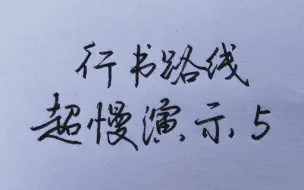 行书路线
超慢演示5